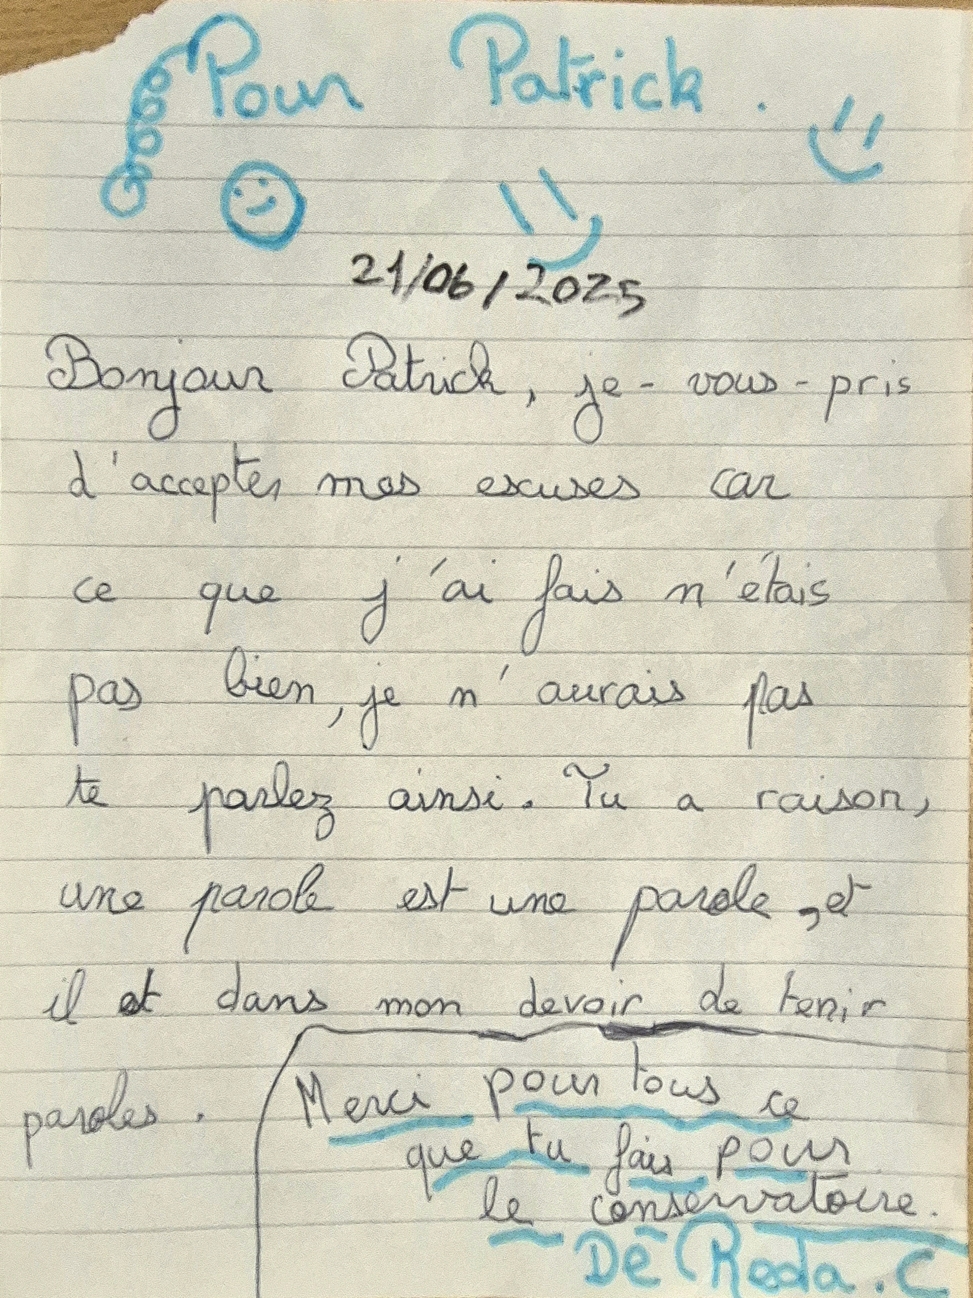 Pour Patrick.
21/06/2025
Bonjour Patrick, je-vous-pris
d'accepter mes escuses car
ce que j'ai fais n'étais
pas bien, je n'aurais pas
te parlez ainsi. Tu a raison,
une parole est une parole, et
il et dans mon devoir de tenir
paroles.
Merci pour tous ce
que tu fais pour
le conservatoire.
De Reda.C